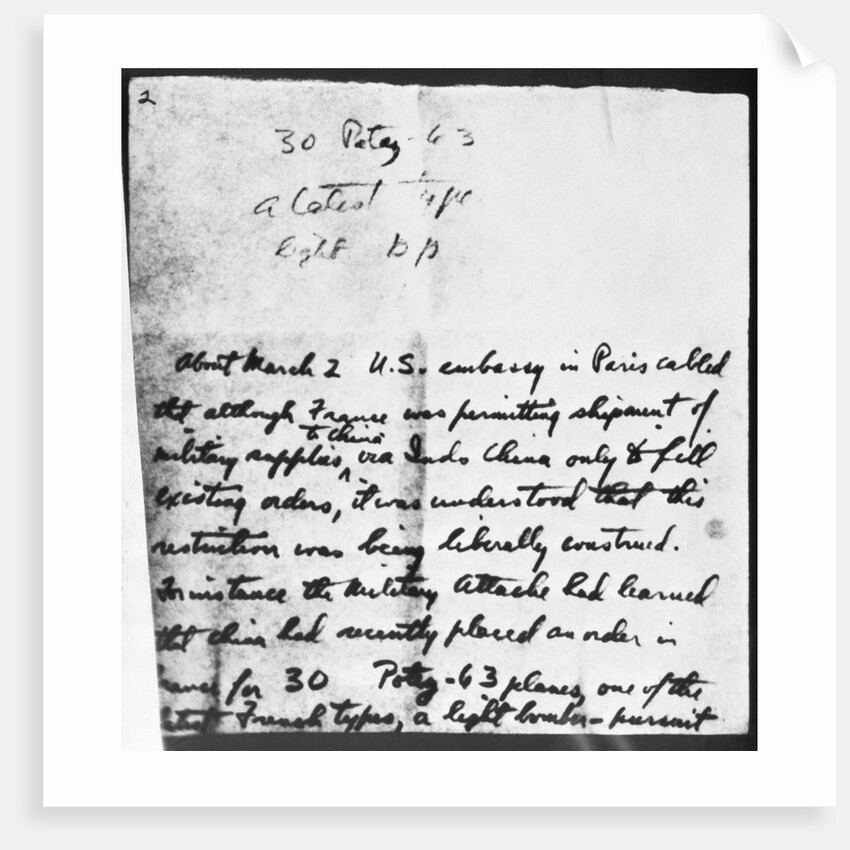 2
30 Potez-63
a latest type
light bp
About March 2 U.S. embassy in Paris cabled
that although France was permitting shipment of
to China
military supplies, via Indo China only to fill
existing orders, it was understood that this
restriction was being liberally construed.
For instance the Military Attache had learned
that China had recently placed an order in
France for 30 Potez-63 planes, one of the
latest French types, a light bomber-pursuit